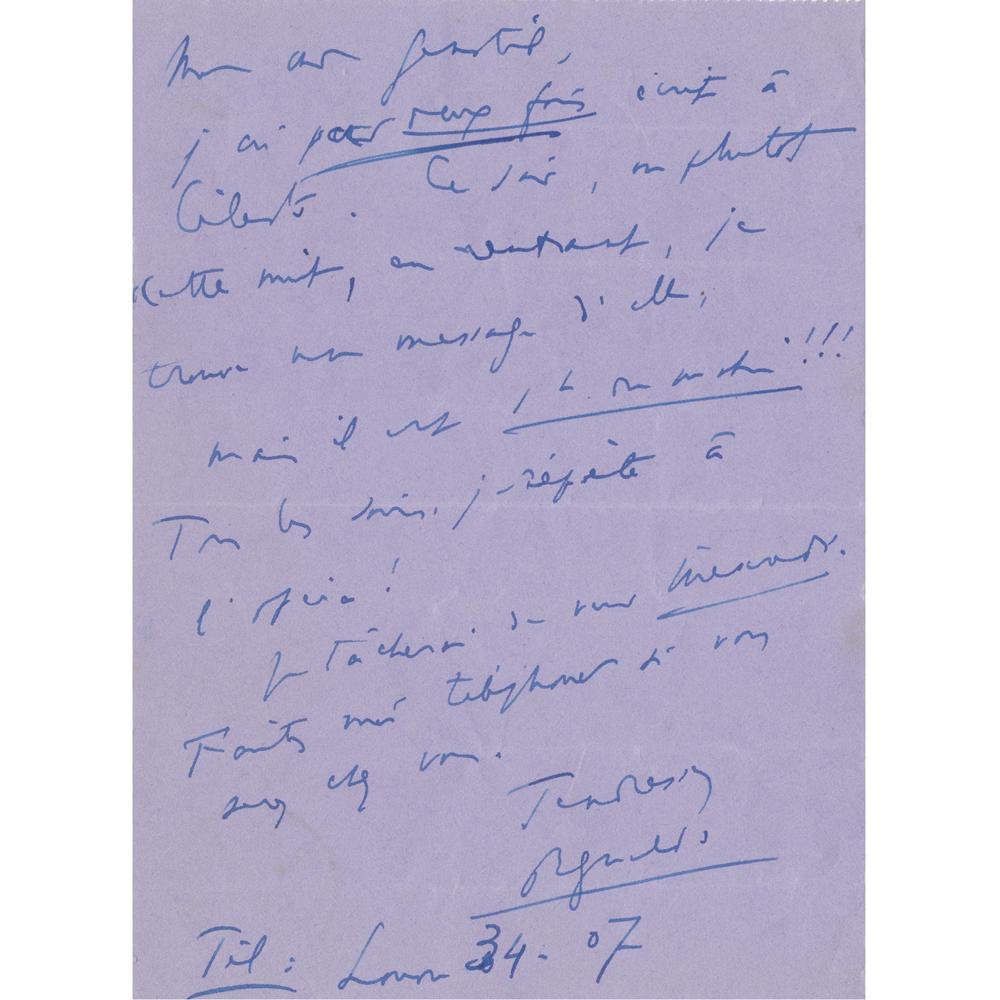 Mon cher gentil,
j'ai deux fois écrit à
Céleste. Ce soir, ou plutôt
cette nuit, en rentrant, je
trouve un message d'elle,
mais il est 1 h. du matin !!!
Tous les soirs, je répète à
l'opéra !
Je tâcherai de venir
Faites moi téléphoner si vous
serez chez vous.
Tendresses
Reynaldo
Tél : Louvre 34-07